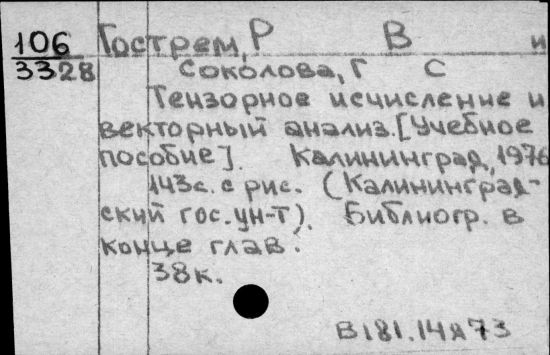 106 Гострем, Р В и
3328 Соколова, Г С
Тензорное исчисление и
векторный анализ. [Учебное
пособие]. Калининград, 1976
143с. с рис. (Калининград-
ский гос. ун-т). Библиогр. в
конце глав.
38к.
В181.14я73